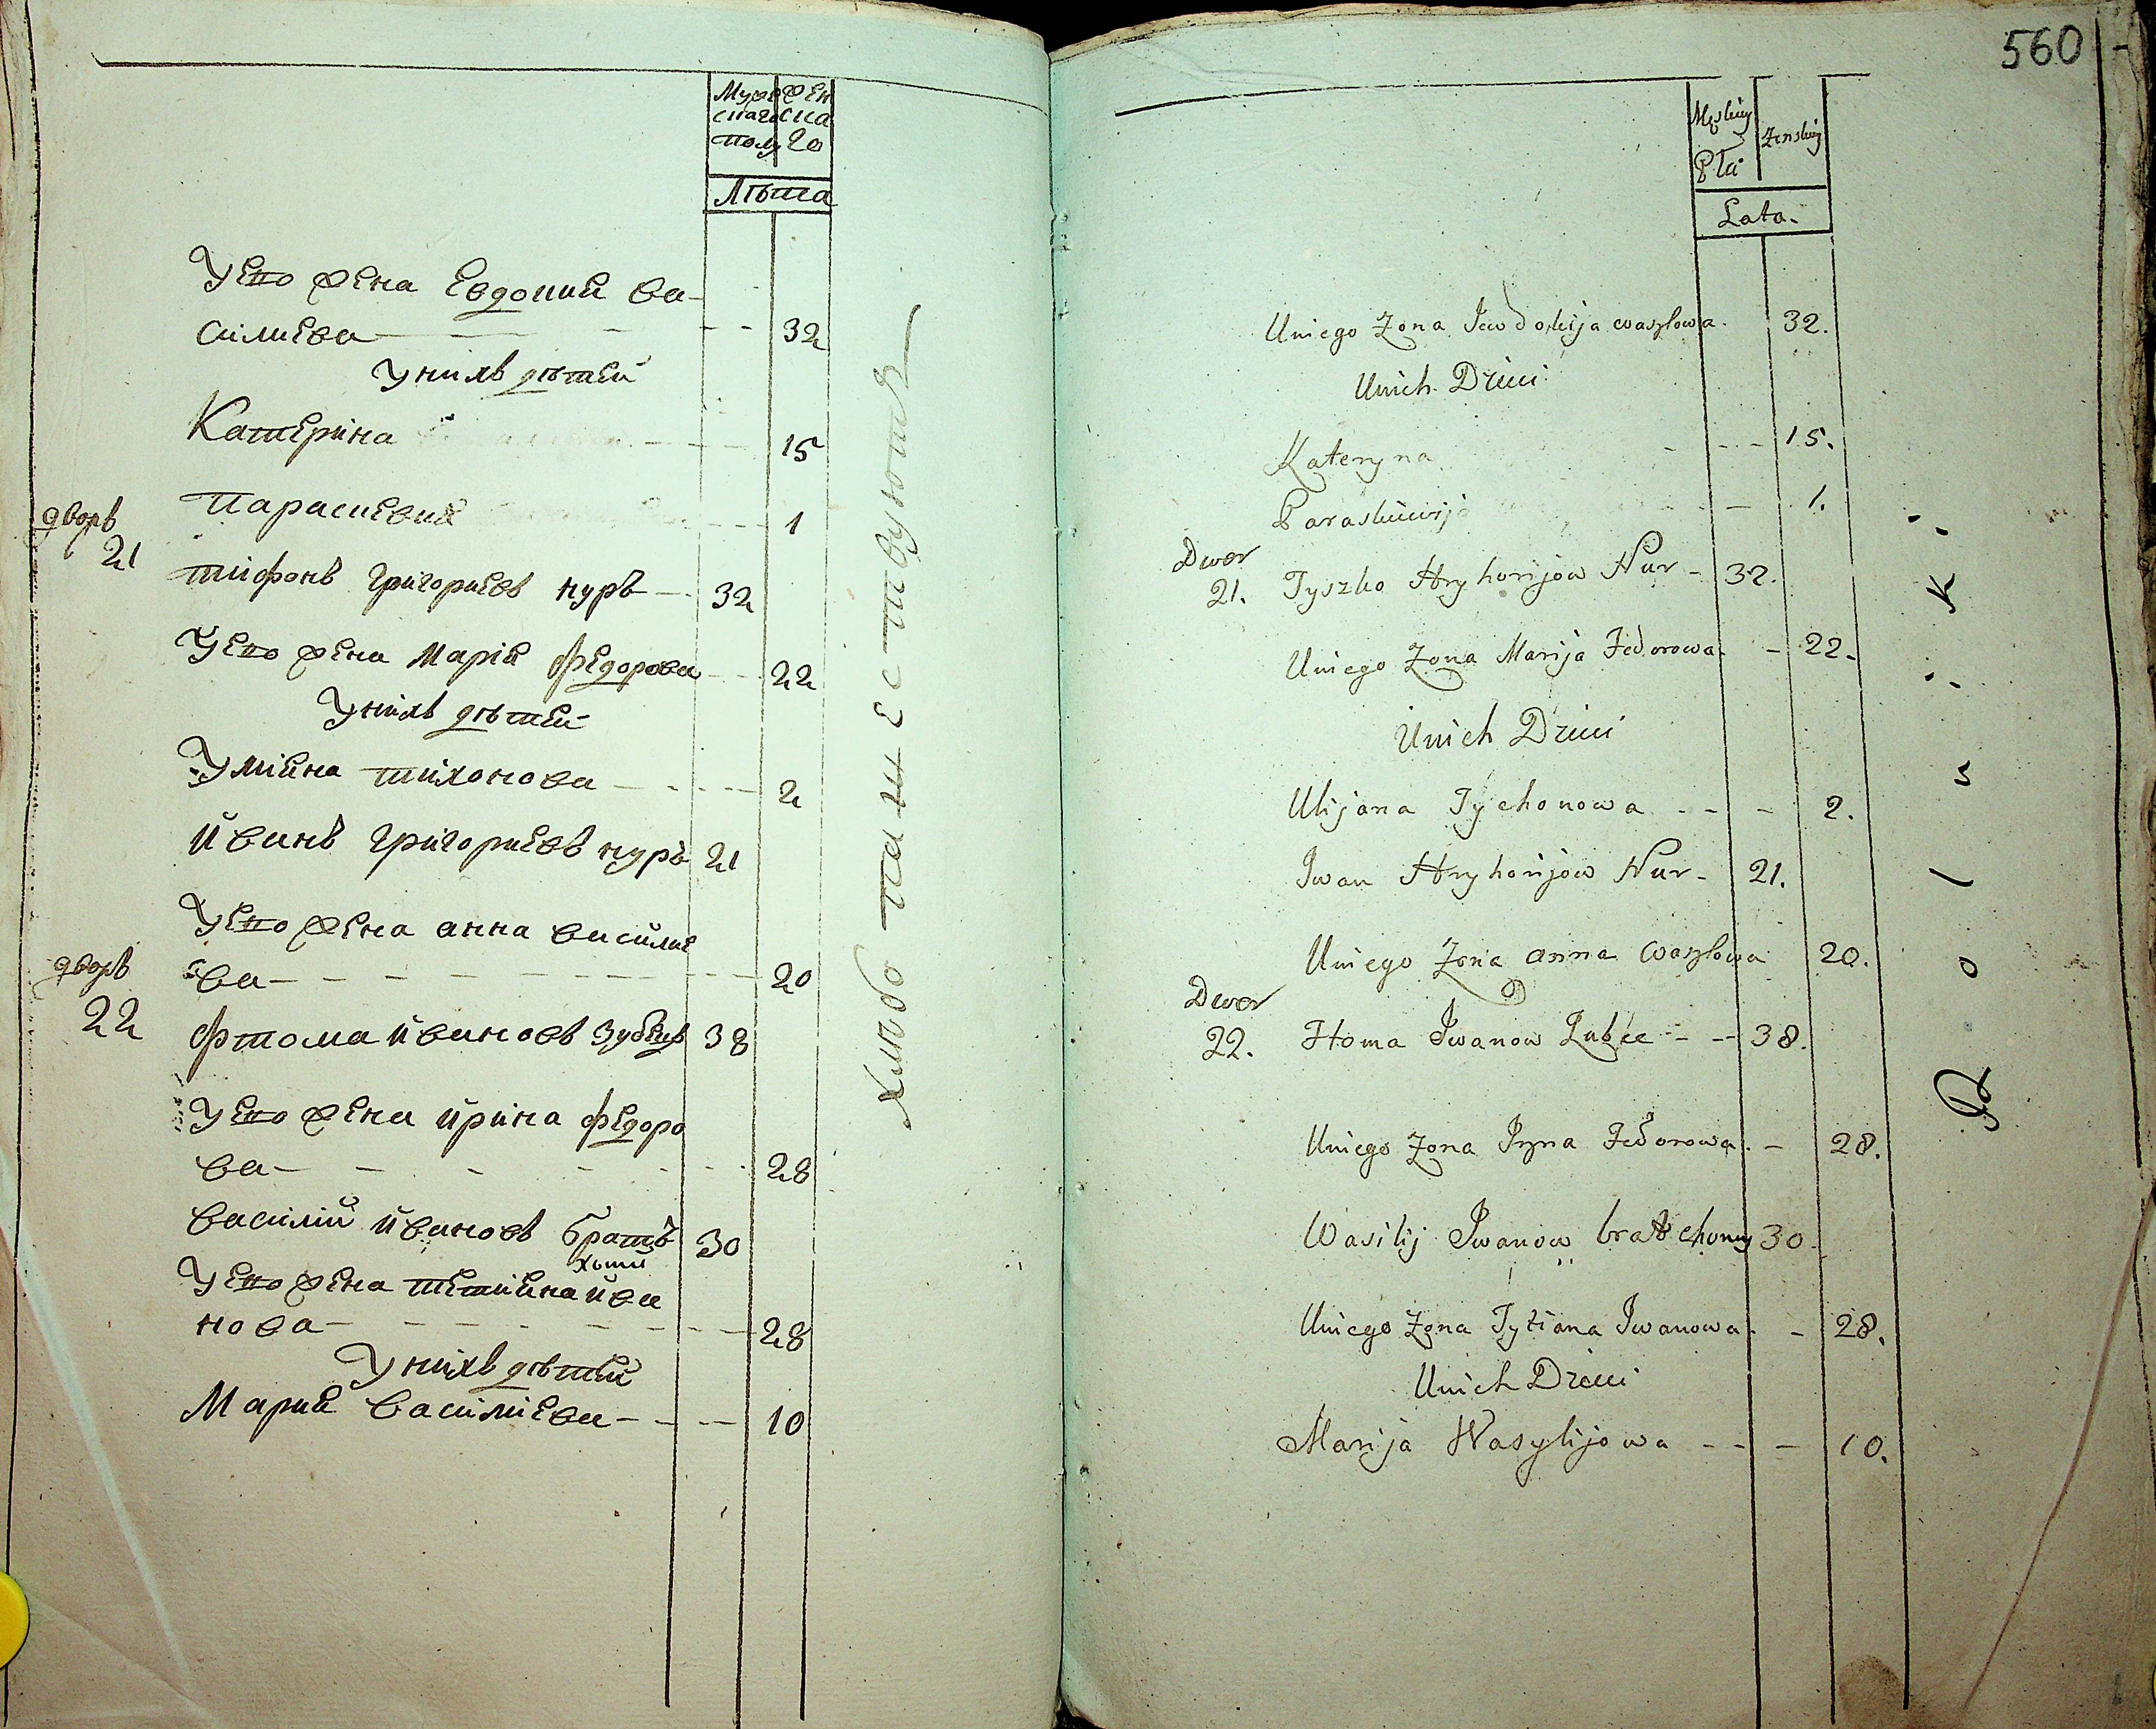 Мужеска Женска
полу го
Лѣта
У его жена Евдокия Ва-
силиева 32
У нихъ дѣтей
Катерина 15
Параскевия 1
дворъ
21
Тифонъ Григориевъ нуръ 32
У его жена Мария Федорова 22
У нихъ дѣтей
Улияна Тихонова 2
Иванъ Григориевъ нуръ 21
У его жена анна Василие
ва 20
дворъ
22
Фтома Ивановъ 38
У его жена Ирина Федоро
ва 28
Василий Ивановъ братъ 30
Хоми
У его жена Тетияна Ива
нова 28
У нихъ дѣтей
Мария Василиева 10
560
Męskiey żenskiey
Płci
Lata.
Uniego Zona Jewdokija waszlowa. 32.
Unich Dzieci
Kateryna 15.
Paraskiewija 1.
Dwor
21. Tyszko Hryhorijow Nur 32.
Uniego Zona Marija Fedorowa 22.
Unich Dzieci
Ulijana Tychonowa 2.
Iwan Hryhorijow Nur 21.
Uniego Zona anna waszlowa 20.
Dwor
22. Homa Iwanow 38.
Uniego Zona Iryna Fedorowa 28.
Wasilij Iwanow brat chomy 30
Uniego Zona Tytiana Iwanowa 28.
Unich Dzieci
Marija Wasylijowa 10.